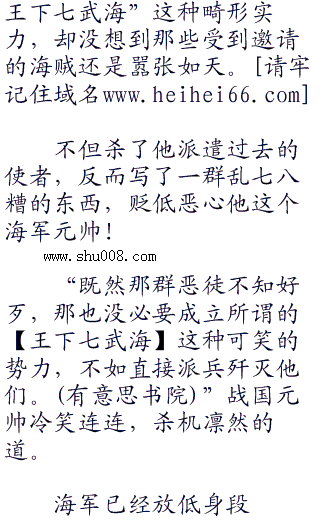 王下七武海”这种畸形实
力，却没想到那些受到邀请
的海贼还是嚣张如天。[请牢
记住域名www.heihei66.com]
不但杀了他派遣过去的
使者，反而写了一群乱七八
糟的东西，贬低恶心他这个
海军元帅！
www.shu008.com
“既然那群恶徒不知好
歹，那也没必要成立所谓的
【王下七武海】这种可笑的
势力，不如直接派兵歼灭他
们。(有意思书院)”战国元
帅冷笑连连，杀机凛然的
道。
海军已经放低身段